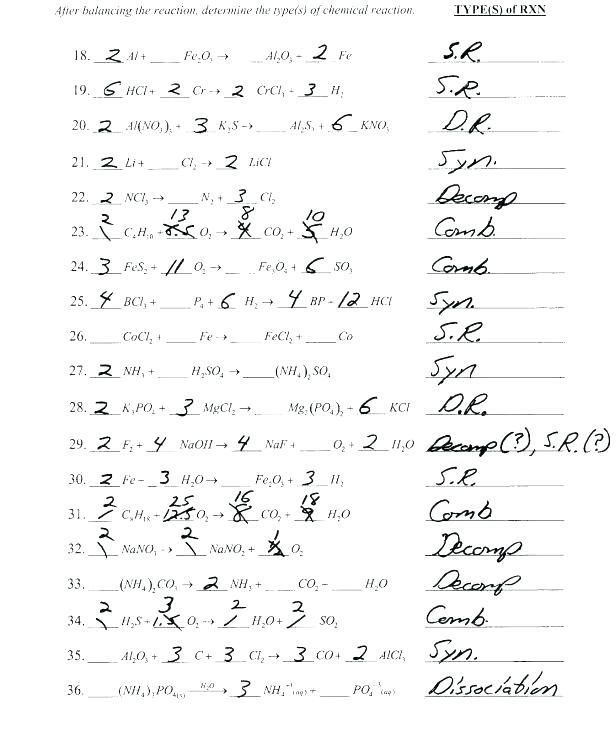 After balancing the reaction, determine the type(s) of chemical reaction. TYPE(S) of RXN
18. 2 Al + ___ Fe₂O₃ → ___ Al₂O₃ + 2 Fe S.R.
19. 6 HCl + 2 Cr → 2 CrCl₃ + 3 H₂ S.R.
20. 2 Al(NO₃)₃ + 3 K₂S → ___ Al₂S₃ + 6 KNO₃ D.R.
21. 2 Li + ___ Cl₂ → 2 LiCl Syn.
22. 2 NCl₃ → ___ N₂ + 3 Cl₂ Decomp
2 13 8 10
23. C₄H₁₀ + 6.5 O₂ → 4 CO₂ + 5 H₂O Comb.
24. 3 FeS₂ + 11 O₂ → ___ Fe₃O₄ + 6 SO₃ Comb.
25. 4 BCl₃ + ___ P₄ + 6 H₂ → 4 BP + 12 HCl Syn.
26. ___ CoCl₂ + ___ Fe → ___ FeCl₂ + ___ Co S.R.
27. 2 NH₃ + ___ H₂SO₄ → ___ (NH₄)₂SO₄ Syn
28. 2 K₃PO₄ + 3 MgCl₂ → ___ Mg₃(PO₄)₂ + 6 KCl D.R.
29. 2 F₂ + 4 NaOH → 4 NaF + ___ O₂ + 2 H₂O Decomp(?), S.R.(?)
30. 2 Fe + 3 H₂O → ___ Fe₂O₃ + 3 H₂ S.R.
2 25 16 18
31. C₈H₁₈ + 12.5 O₂ → 8 CO₂ + 9 H₂O Comb
2 2 1
32. \ NaNO₃ → \ NaNO₂ + ½ O₂ Decomp
33. ___ (NH₄)₂CO₃ → 2 NH₃ + ___ CO₂ + ___ H₂O Decomp
2 3 2 2
34. \ H₂S + 1.5 O₂ → / H₂O + / SO₂ Comb.
35. ___ Al₂O₃ + 3 C + 3 Cl₂ → 3 CO + 2 AlCl₃ Syn.
36. ___ (NH₄)₃PO₄₍ₛ₎ H₂O → 3 NH₄⁺¹(aq) + ___ PO₄⁻³(aq) Dissociation